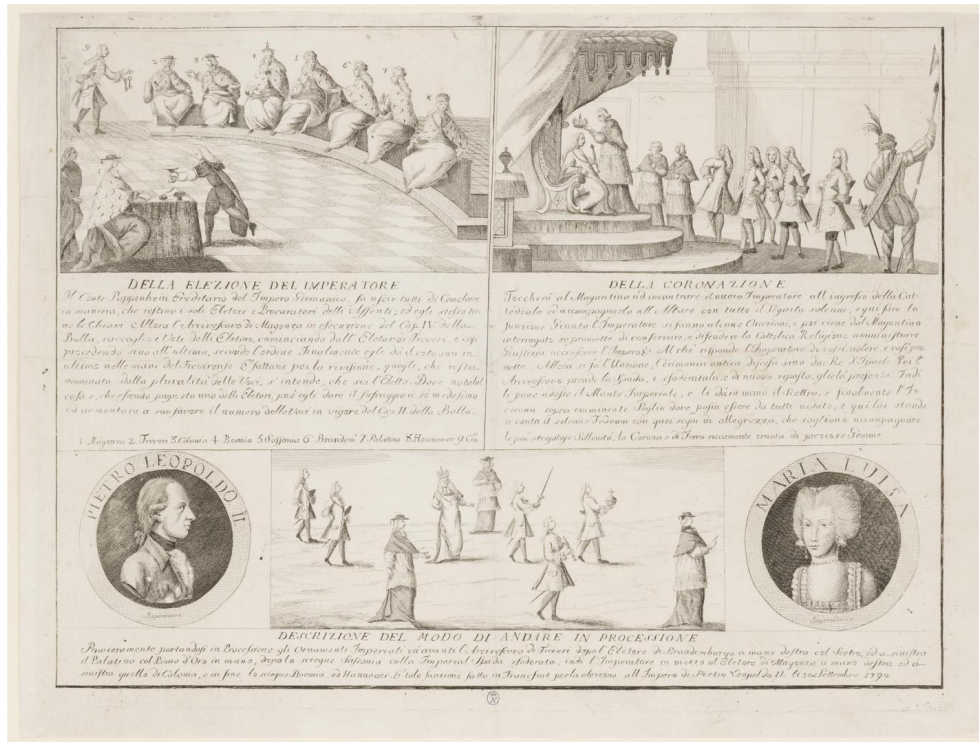 DELLA ELEZIONE DEL IMPERATORE
Il Conte Poppenheim Ereditario del Impero Germanico, fa uscir tutti di Conclave
in maniera, che restino i soli Elettori e Procuratori delli Assenti, ed egli stesso
no le Chiavi Allora l'Arcivescovo di Magonza in esecuzione del Cap. IV della
Bolla, raccoglie i Voti delli Elettori, cominciando dall Elettor di Treveri, e così
procedendo sino all'ultimo, secondo l'ordine Finalmente egli dà il voto suo in
ultimo nelle mani del e fattane poi la revisione, quegli, che resta
nominato dalla pluralità delle Voci, s'intende, che sia l'Eletto. Dove notabil
cosa e, che essendo proposto uno delli Elettori, può egli dare il suffragio a se medesimo
ed aumentare a suo favore il numero delle Voci in vigore del Cap. II della Bolla.
1 Magonza 2 Treveri 3 Colonia 4 Boemia 5 Sassonia 6 Brandenb 7 Palatino 8 Hannover 9
DELLA CORONAZIONE
Toccherà al Maguntino ad incontrare il nuovo Imperatore all ingresso della Cat
tedrale ed accompagnarlo all Altare con tutto il Seguito solenne, e qui fare la
funzione Giunto l'Imperatore si fanno alcune Orazioni, e poi viene dal Maguntino
interrogato se promette di conservare, e difendere la Cattolica Religione amministrare
Giustizia accrescere l'Impero? Al che risponde l'Imperatore di così volere e così pro
mette. Allora si fà l'Unzione, Cerimonia antica discesa sino dai Rè d'Israel. Poi l'
Arcivescovo prende la Spada, e sfoderatala, e di nuovo riposta, gliela presenta Indi
li pone adosso il Manto Imperiale, e li dà in mano il Scettro, e finalmente l'In
corona sopra eminente Soglio dove possa essere da tutti veduto, e quivi stando
si canta il solenne Tedeum con quei segni di allegrezza, che sogliono accompagnare
le più Sollenità, la Corona e di Ferro riccamente ornata di preziose Gemme
PIETRO LEOPOLDO II
MARIA LUISA
DESCRIZIONE DEL MODO DI ANDARE IN PROCESSIONE
Primieramente portandosi in Processione gli Ornamenti Imperiali va avanti l'Arcivescovo di Treveri dopo l'Elettore di Brandemburgo a mano destra col Scetro, ed a sinistra
il Palatino col Pomo d'Oro in mano, dopo lo siegue Sassonia colla Imperial Spada sfoderata, indi l'Imperatore in mezzo al Elettore di Magonza a mano destra ed a
sinistra quello di Colonia, e in fine lo siegue Boemia, ed Hannover. E tale funzione fatta in Francfort per la elezione all Impero di Pietro Leopoldo II. li 30 Settembre 1790